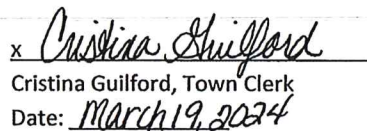 x Cristina Guilford
Cristina Guilford, Town Clerk
Date: March 19, 2024